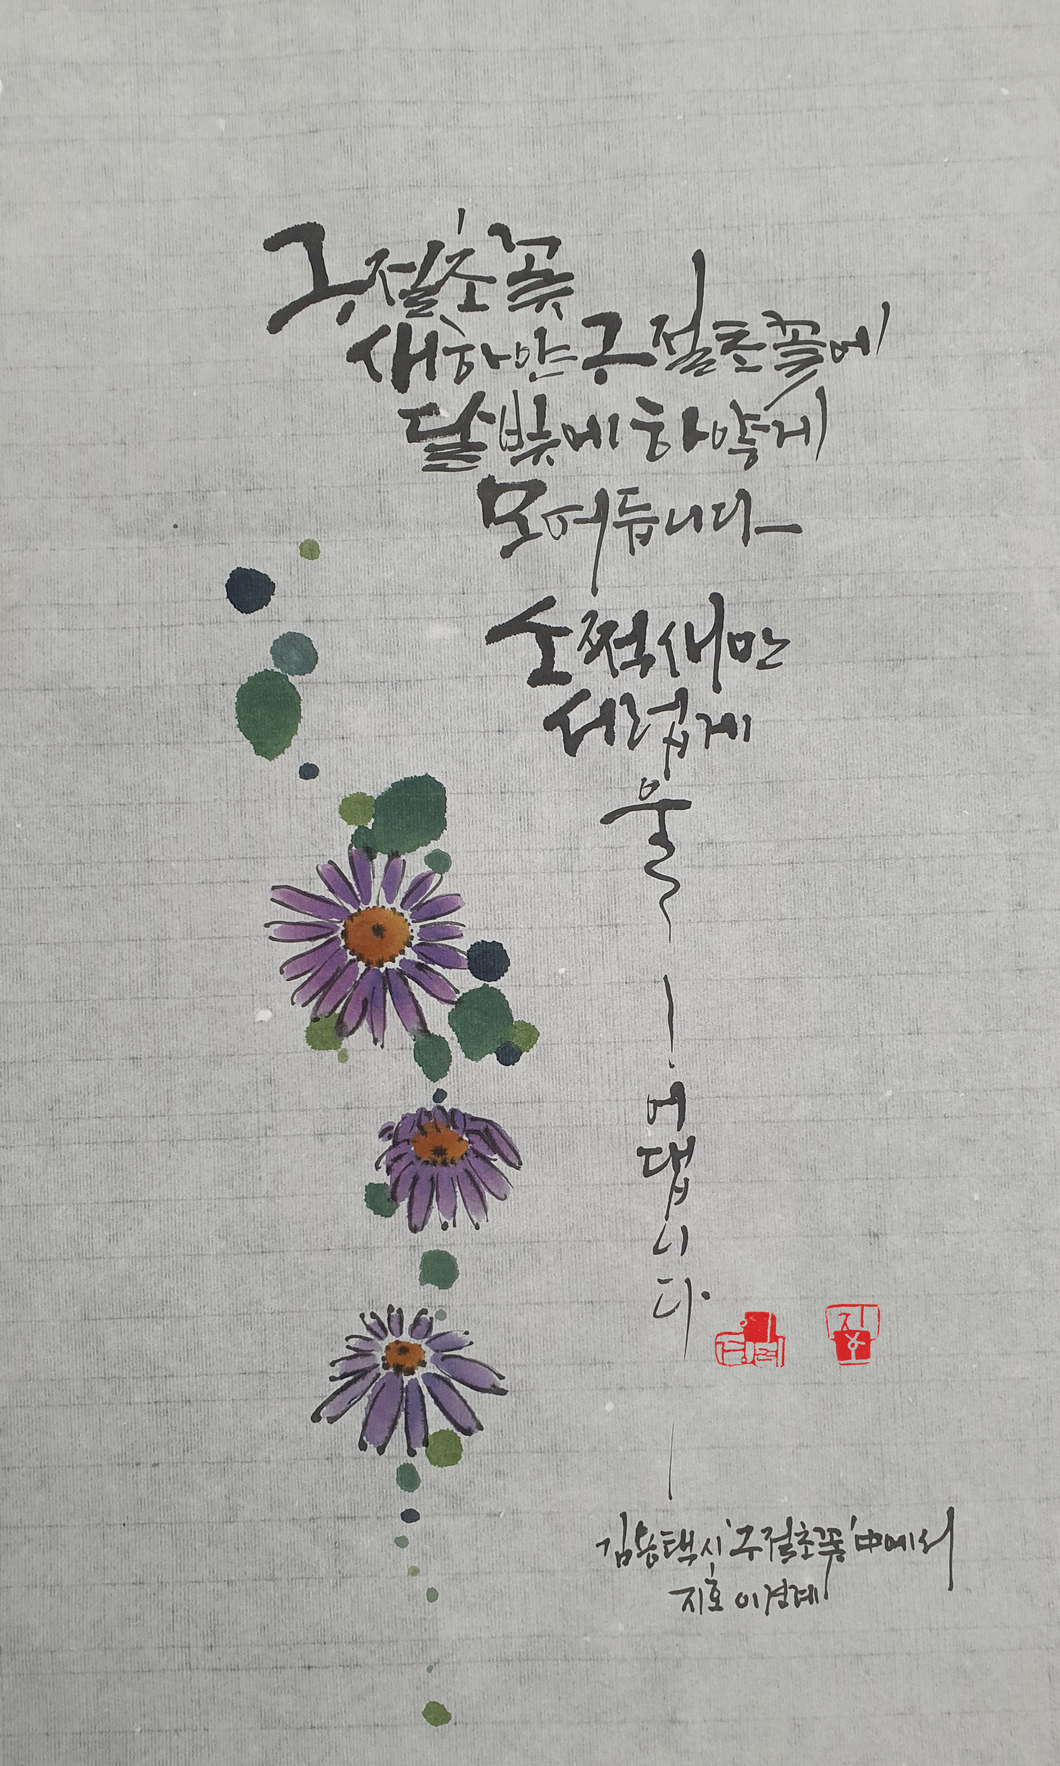 구절초꽃
새하얀 구절초꽃에
달빛에 하얗게
모여듭니다
소쩍새만
서럽게
울
어
댑
니
다.
김용택 시 '구절초꽃' 中에서
지호 이경례
지호